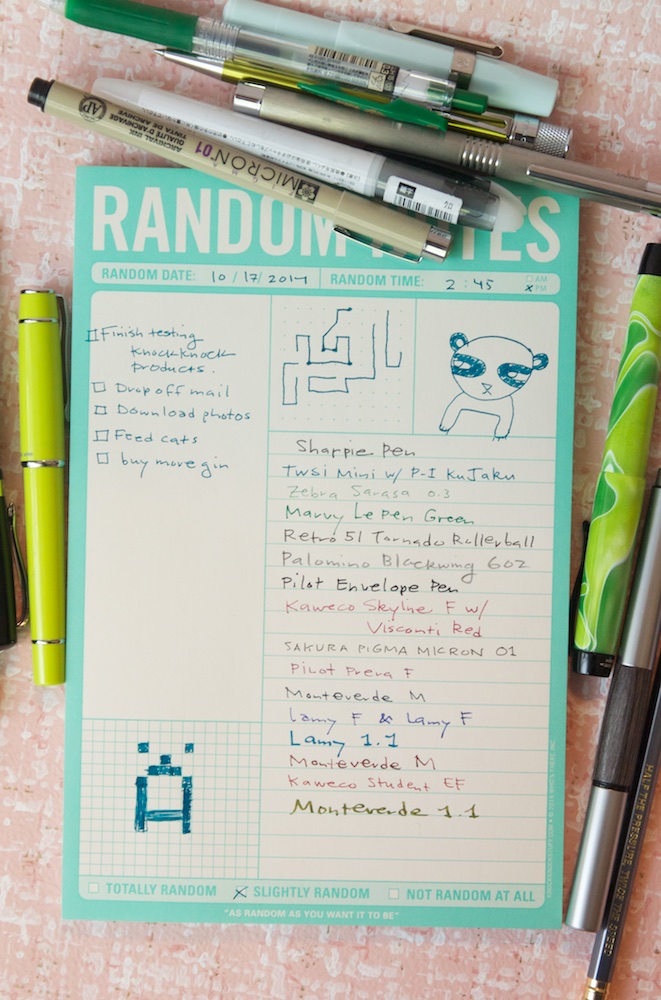 ARCHIVAL INK
QUALITÉ D'ARCHIVAGE
TINTA DE ARCHIVO
MICRON 01
RANDOM NOTES
RANDOM DATE: 10/17/2014 RANDOM TIME: 2:45 AM
x PM
Finish testing
knockknock
products.
Drop off mail
Download photos
Feed cats
buy more gin
Sharpie Pen
TWSI Mini w/ P-I KuJaku
Zebra Sarasa 0.3
Marvy Le Pen Green
Retro 51 Tornado Rollerball
Palomino Blackwing 602
Pilot Envelope Pen
Kaweco Skyline F w/
Visconti Red
SAKURA PIGMA MICRON 01
Pilot Prera F
Monteverde M
Lamy F & Lamy F
Lamy 1.1
Monteverde M
Kaweco Student EF
Monteverde 1.1
TOTALLY RANDOM x SLIGHTLY RANDOM NOT RANDOM AT ALL
"AS RANDOM AS YOU WANT IT TO BE"
HALF THE PRESSURE, TWICE THE SPEED